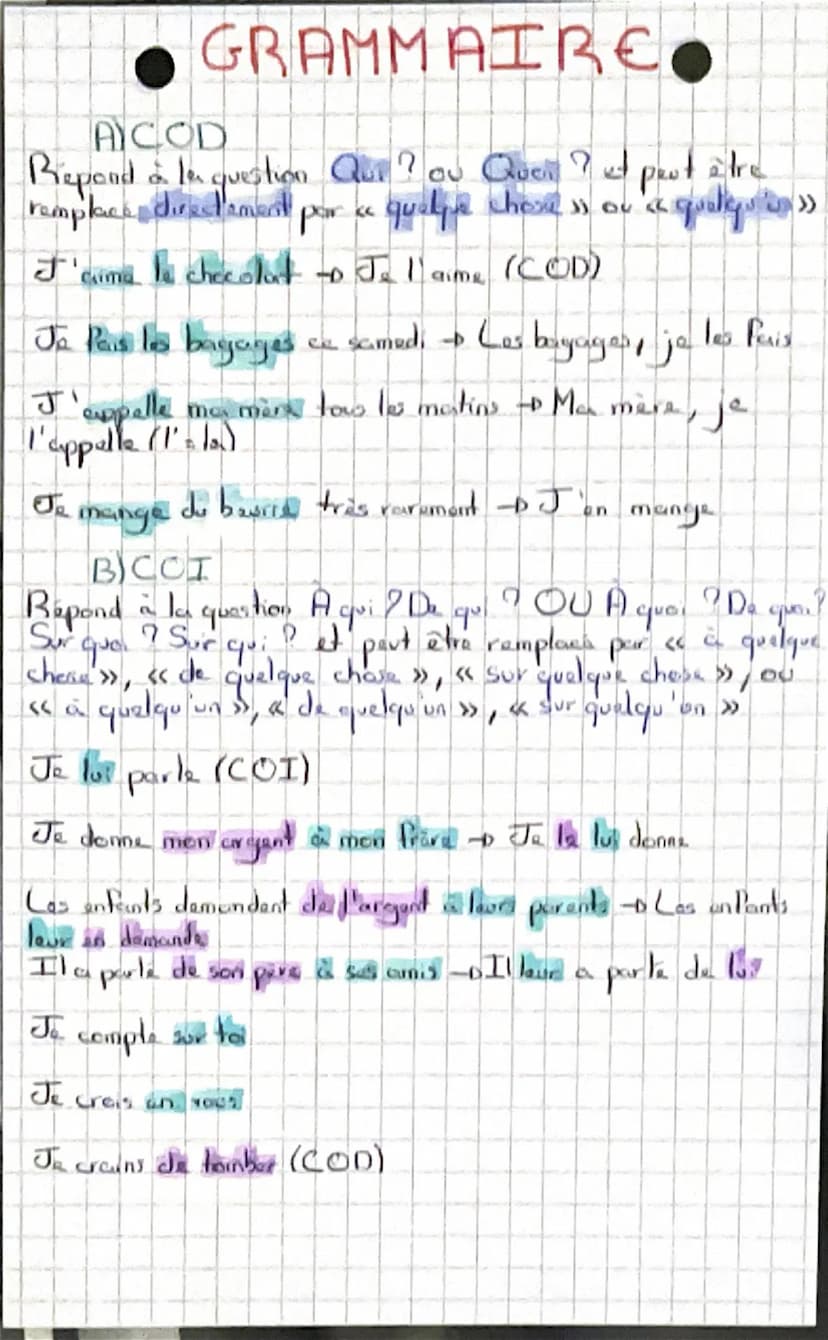 GRAMMAIRE
A) COD
Répond à la question Qui ? ou Quoi ? et peut être
remplacé directement par « quelque chose » ou « quelqu'un »
J'aime le chocolat → Je l'aime (COD)
Je fais les bagages ce samedi → Les bagages, je les fais
J'appelle ma mère tous les matins → Ma mère, je
l'appelle (l' = la)
Je mange du beurre très rarement → J'en mange
B) COI
Répond à la question À qui ? De qui ? OU À quoi ? De quoi ?
Sur quoi ? Sur qui ? et peut être remplacé par « à quelque
chose », « de quelque chose », « sur quelque chose », ou
« à quelqu'un », « de quelqu'un », « sur quelqu'un »
Je lui parle (COI)
Je donne mon argent à mon frère → Je le lui donne
Les enfants demandent de l'argent à leurs parents → Les enfants
leur en demande
Il a parlé de son père à ses amis → Il leur a parlé de lui
Je compte sur toi
Je crois en vous
Je crains de tomber (COD)